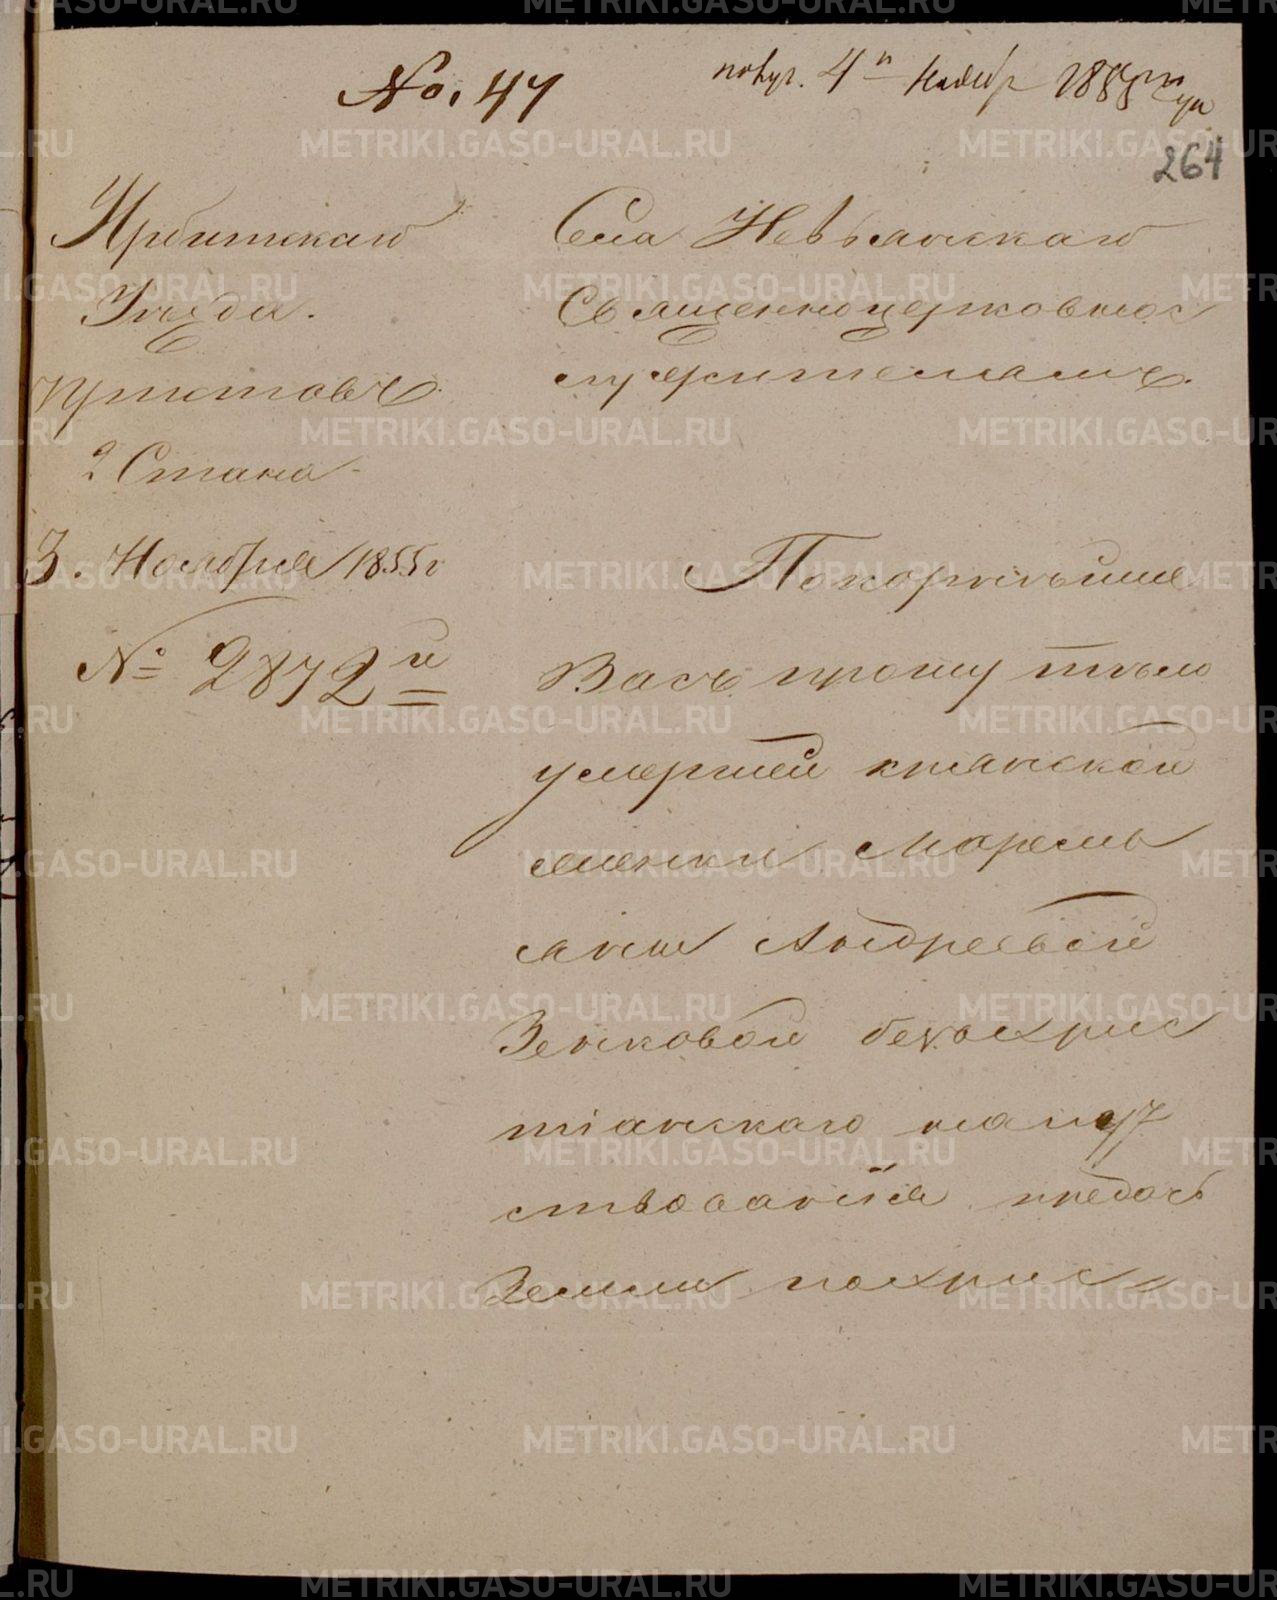 No. 47
получ. 4го Ноябр 1855 года
264
Ирбитскаго
Уѣзда.
Приставъ
2 Стана
3. Ноября 1855 г
№ 2872й
Села Невьянскаго
Священноцерковнос
лужителямъ.
Покорнѣйше
Васъ прошу тѣло
умершей крестьянской
женки Маремь
яны Андреевой
Зенковой безъ хрис
тіанскаго напут
ствованія предать
Земли по хрис
METRIKI.GASO-URAL.RU